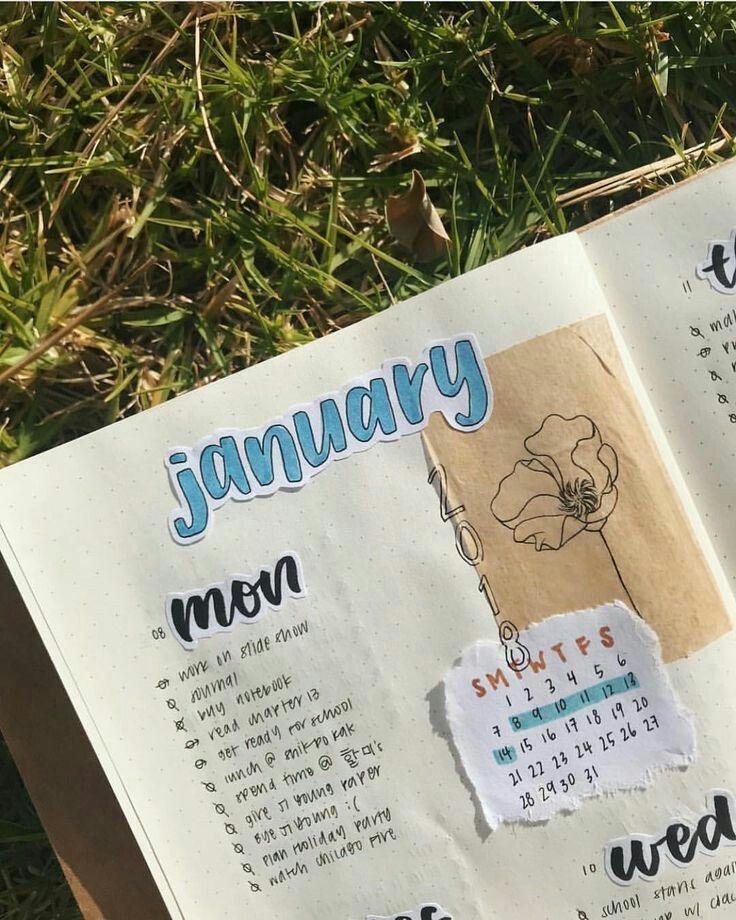 january
2018
S M T W T F S
1 2 3 4 5 6
7 8 9 10 11 12 13
14 15 16 17 18 19 20
21 22 23 24 25 26 27
28 29 30 31
08 mon
work on slide show
journal
buy notebook
read chapter 13
get ready for school
lunch @ shik do kak
spend time @ 할머's
give ji young paper
bye ji young :(
plan holiday party
watch chicago fire
11
10 wed
school starts again
w/